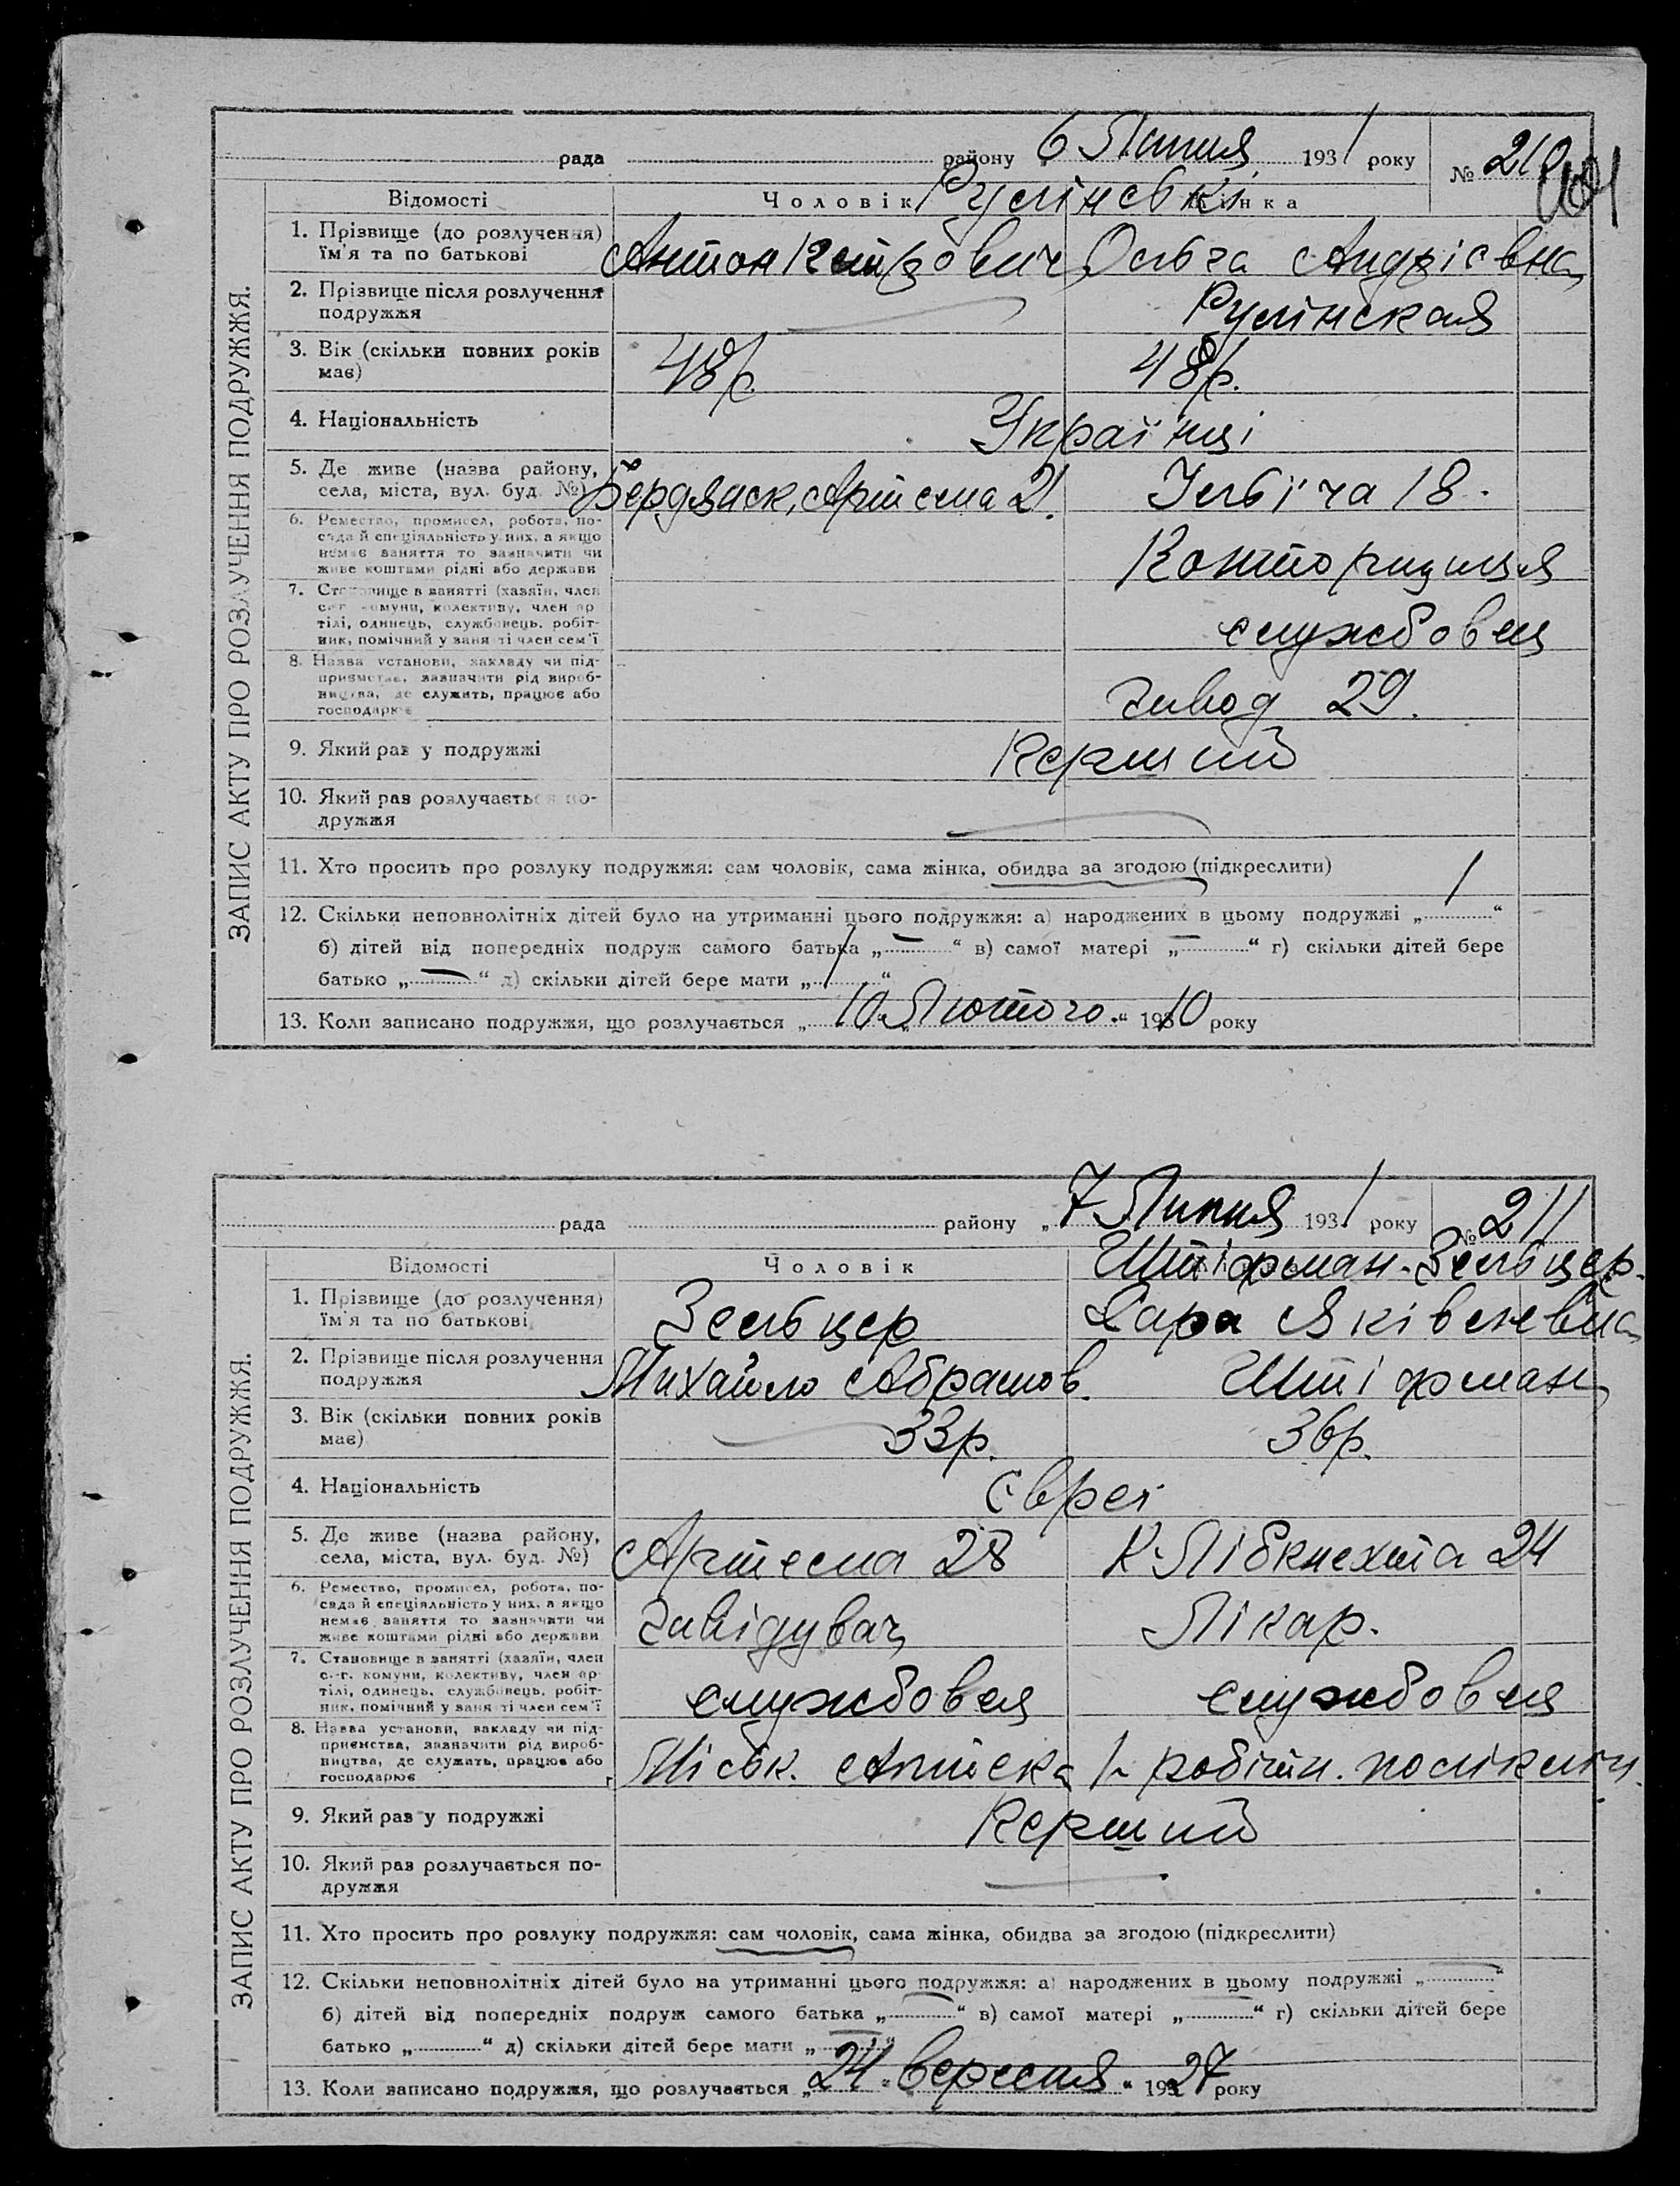 рада района 6 Липня 1931 року № 210
Відомості Чоловік Жінка
Русінські
1. Прізвище (до розлучення) їм'я та по батькові Антон Петрович Ольга Андрієвна
2. Прізвище після розлучення подружжя — Русінская
3. Вік (скільки повних років має) 48 р. 48 р.
4. Національність Українці
5. Де живе (назва району, села, міста, вул. буд. №) Бердянск, Артема 21. Ілліча 18.
6. Ремество, промисел, робота, посада й спеціяльність у них, а якщо немає заняття то зазначити чи живе коштами рідні або держави
Конторщиця
7. Становище в занятті (хазяїн, член с.-г. комуни, колективу, член артілі, одинець, службовець, робітник, помічний у занятті член сем'ї
службовця
8. Назва установи, закладу чи підприємства, зазначити рід виробництва, де служить, працює або господарює
завод 29.
9. Який раз у подружжі Перший
10. Який раз розлучається подружжя —
11. Хто просить про розлуку подружжя: сам чоловік, сама жінка, обидва за згодою (підкреслити)
12. Скільки неповнолітніх дітей було на утриманні цього подружжя: а) народжених в цьому подружжі „1“
б) дітей від попередніх подруж самого батька „—“ в) самої матері „—“ г) скільки дітей бере
батько „—“ д) скільки дітей бере мати „1“
13. Коли записано подружжя, що розлучається „10 Лютого.“ 1910 року
ЗАПИС АКТУ ПРО РОЗЛУЧЕННЯ ПОДРУЖЖЯ.
рада району „7 Липня 1931 року № 211
Відомості Чоловік Штіфман-Зельцер.
1. Прізвище (до розлучення) їм'я та по батькові Зельцер Сара Яківлевна
2. Прізвище після розлучення подружжя Михайло Абрамов. Штіфман
3. Вік (скільки повних років має) — 33 р. 36 р.
4. Національність Євреї
5. Де живе (назва району, села, міста, вул. буд. №) Артема 28 К. Лібкнехта 24
6. Ремество, промисел, робота, посада й спеціяльність у них, а якщо немає заняття то зазначити чи живе коштами рідні або держави
Завідувач Лікар.
7. Становище в занятті (хазяїн, член с.-г. комуни, колективу, член артілі, одинець, службовець, робітник, помічний у занятті член сем'ї
службовця службовця
8. Назва установи, закладу чи підприємства, зазначити рід виробництва, де служить, працює або господарює
Міськ. Аптека робітн. поліклін.
9. Який раз у подружжі Перший
10. Який раз розлучається подружжя —
11. Хто просить про розлуку подружжя: сам чоловік, сама жінка, обидва за згодою (підкреслити)
12. Скільки неповнолітніх дітей було на утриманні цього подружжя: а) народжених в цьому подружжі „—“
б) дітей від попередніх подруж самого батька „—“ в) самої матері „—“ г) скільки дітей бере
батько „“ д) скільки дітей бере мати „—“
13. Коли записано подружжя, що розлучається „24“ вересня“ 1927 року
ЗАПИС АКТУ ПРО РОЗЛУЧЕННЯ ПОДРУЖЖЯ.